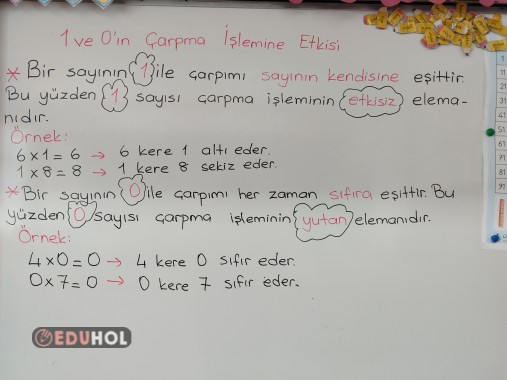 1 ve 0'ın Çarpma İşlemine Etkisi
* Bir sayının 1 ile çarpımı sayının kendisine eşittir.
Bu yüzden 1 sayısı çarpma işleminin etkisiz elema-
nıdır.
Örnek:
6 x 1 = 6 → 6 kere 1 altı eder.
1 x 8 = 8 → 1 kere 8 sekiz eder.
* Bir sayının 0 ile çarpımı her zaman sıfıra eşittir. Bu
yüzden 0 sayısı çarpma işleminin yutan elemanıdır.
Örnek:
4 x 0 = 0 → 4 kere 0 sıfır eder.
0 x 7 = 0 → 0 kere 7 sıfır eder.
EDUHOL
1
11
21
31
41
51
61
71
81
91